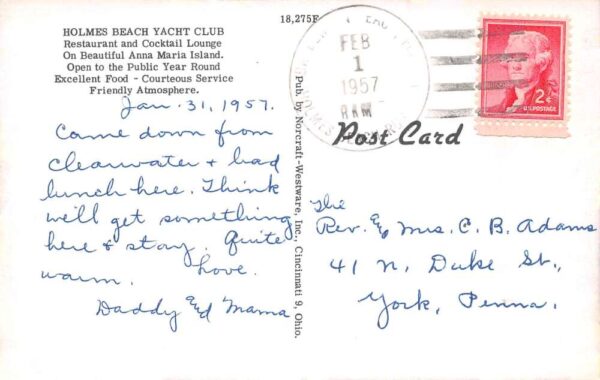 HOLMES BEACH YACHT CLUB
Restaurant and Cocktail Lounge
On Beautiful Anna Maria Island.
Open to the Public Year Round
Excellent Food - Courteous Service
Friendly Atmosphere.
Jan. 31, 1957.
Came down from
Clearwater & had
lunch here. Think
we'll get something
here & stay. Quite
warm. Love.
Daddy and Mama
18,275F
Pub. by Norcraft-Westware, Inc., Cincinnati 9, Ohio.
FEB
1
1957
AM
HOLMES
2¢
U.S. POSTAGE
Post Card
The
Rev. & Mrs. C. B. Adams
41 N. Duke St.,
York, Penna.